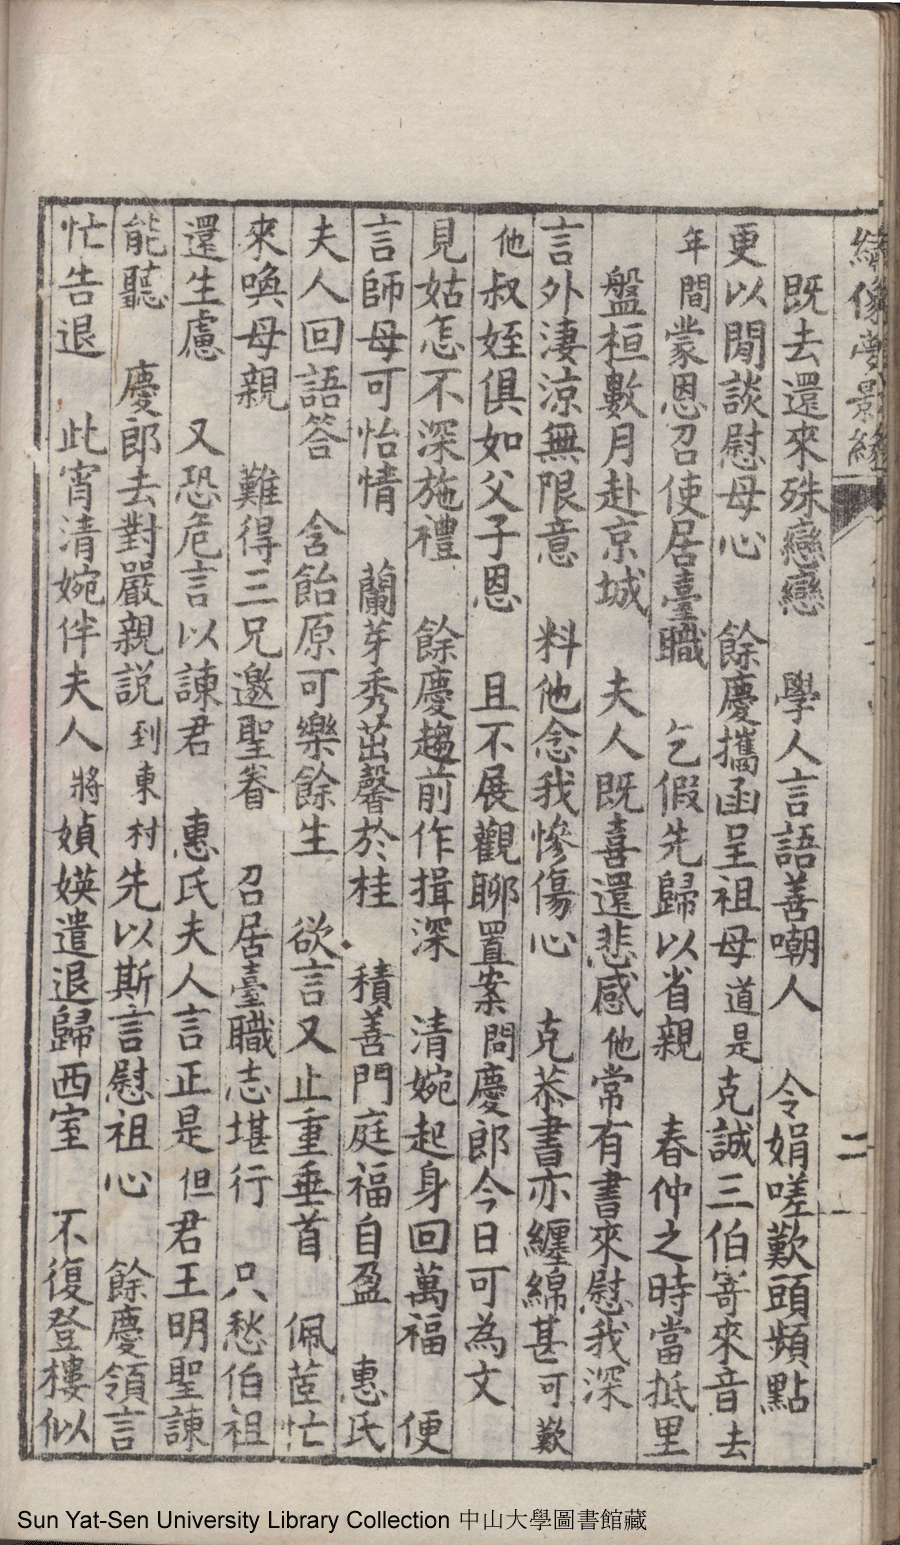 繡像夢影緣
二
既去還來殊戀戀 學人言語善嘲人 令娟嗟歎頭頻點
更以閒談慰母心 餘慶攜函呈祖母道是克誠三伯寄來音去
年間蒙恩召使居臺職 乞假先歸以省親 春仲之時當抵里
盤桓數月赴京城 夫人既喜還悲感他常有書來慰我深
言外淒涼無限意 料他念我慘傷心 克恭書亦纏綿甚可歎
他叔姪俱如父子恩 且不展觀聊置案問慶郎今日可為文
見姑怎不深施禮 餘慶趨前作揖深 清婉起身回萬福 便
言師母可怡情 蘭芽秀茁馨於桂 積善門庭福自盈 惠氏
夫人回語答 含飴原可樂餘生 欲言又止重垂首 佩茝忙
來喚母親 難得三兄邀聖眷 召居臺職志堪行 只愁伯祖
還生慮 又恐危言以諫君 惠氏夫人言正是但君王明聖諫
能聽 慶郎去對嚴親說到東村先以斯言慰祖心 餘慶領言
忙告退 此宵清婉伴夫人將媜媖遣退歸西室 不復登樓似
Sun Yat-Sen University Library Collection 中山大學圖書館藏